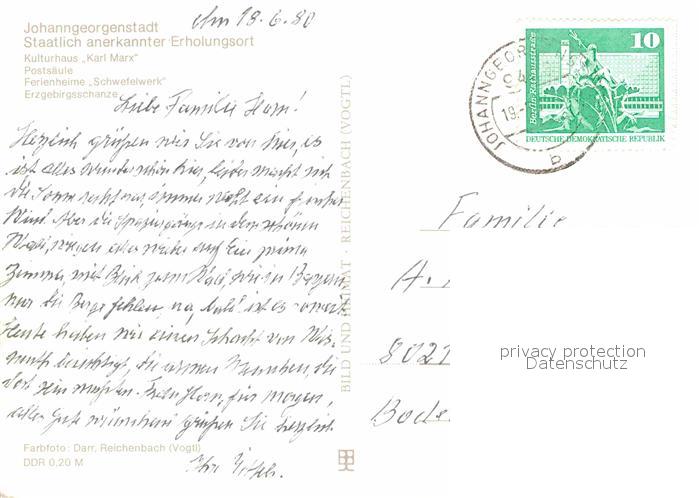 Johanngeorgenstadt
Staatlich anerkannter Erholungsort
Kulturhaus „Karl Marx“
Postsäule
Ferienheime „Schwefelwerk“
Erzgebirgsschanze
18.6.80
Liebe Familie Horn!
Herzlich grüßen wir Sie von hier, es
ist alles wunderschön hier, leider macht sich
die Sonne recht rar, immer weht ein
Wind. Aber die Spaziergänge in dem schönen
Wald, wiegen alles wieder auf. Ein prima
Zimmer, mit Blick zum Wald, wie in Bayern
nur die Berge fehlen, na, bald ist es soweit
Heute haben wir einen Schacht von Wis-
muth besichtigt, die armen Menschen, die
dort sein mußten. Frau Horn, für morgen,
alles Gute wünschen grüßen Sie herzlich
Ihre
Farbfoto: Darr, Reichenbach (Vogtl)
DDR 0,20 M
BILD UND HEIMAT · REICHENBACH (VOGTL)
JOHANNGEORGENST
94
19.
b
Berlin-Rathausstraße
10
DEUTSCHE DEMOKRATISCHE REPUBLIK
Familie
A.
8021
privacy protection
Datenschutz